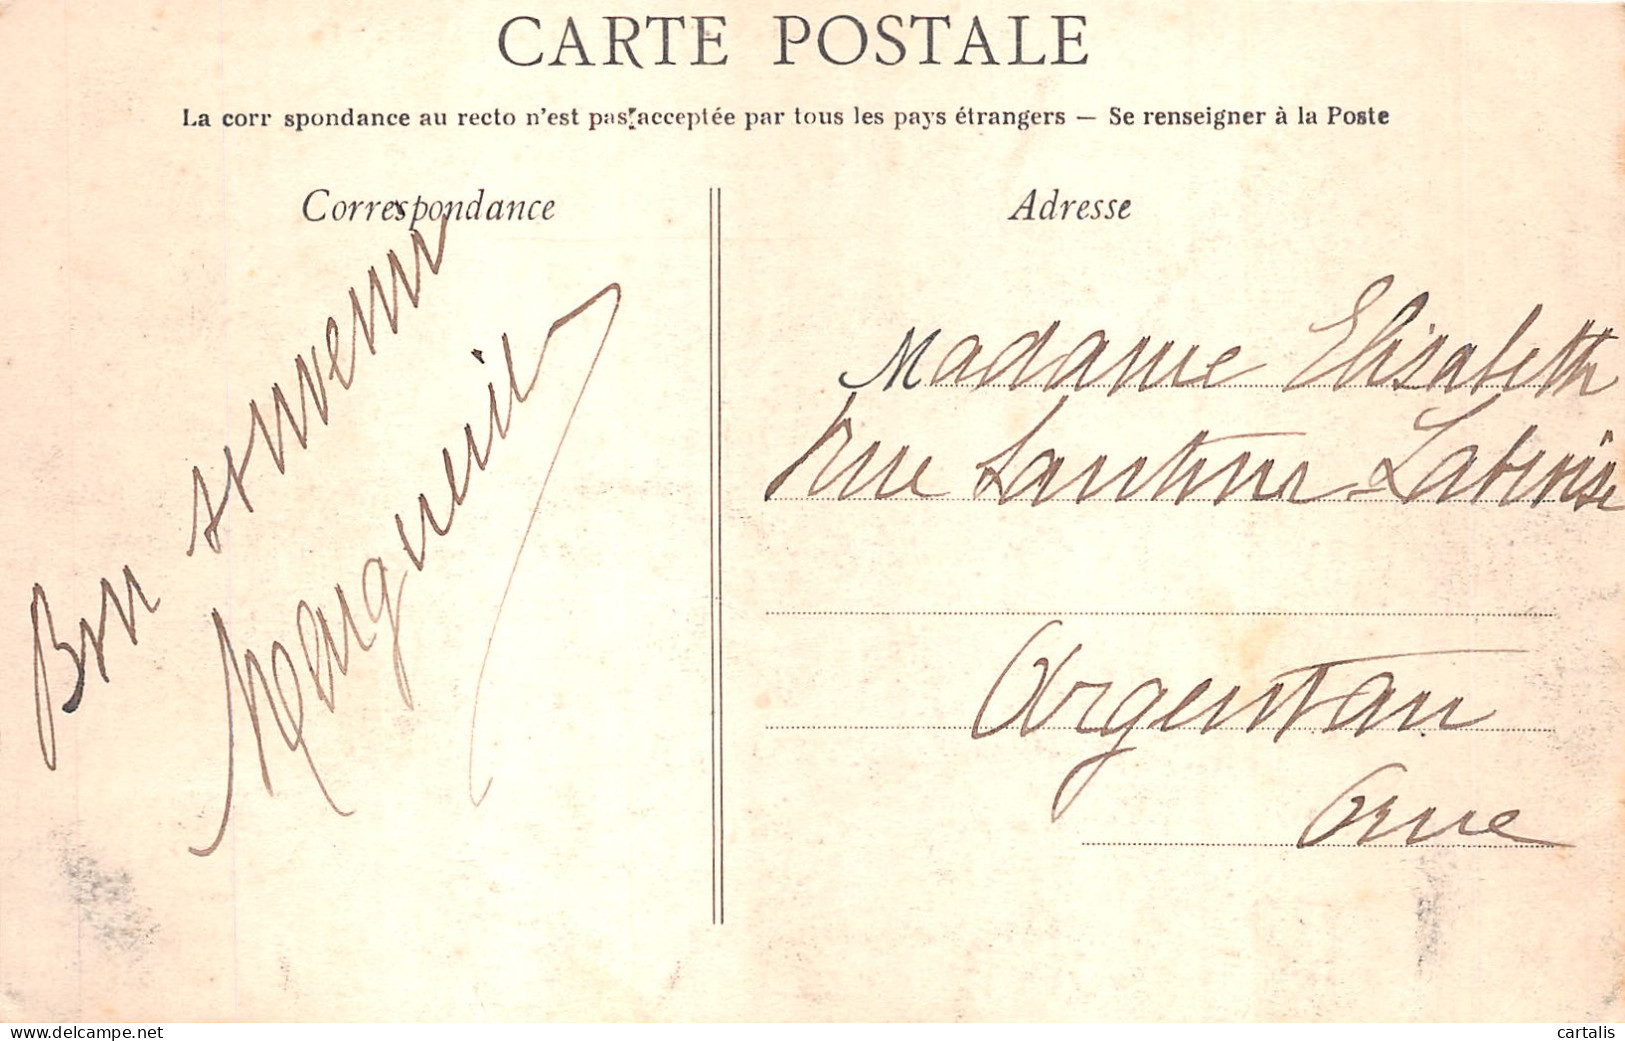 CARTE POSTALE
La corr spondance au recto n'est pas acceptée par tous les pays étrangers — Se renseigner à la Poste
Correspondance
Bon souvenir
Marguerite
Adresse
Madame Elisabeth
rue
Argentan
Orne
delcampe.net
cartalis